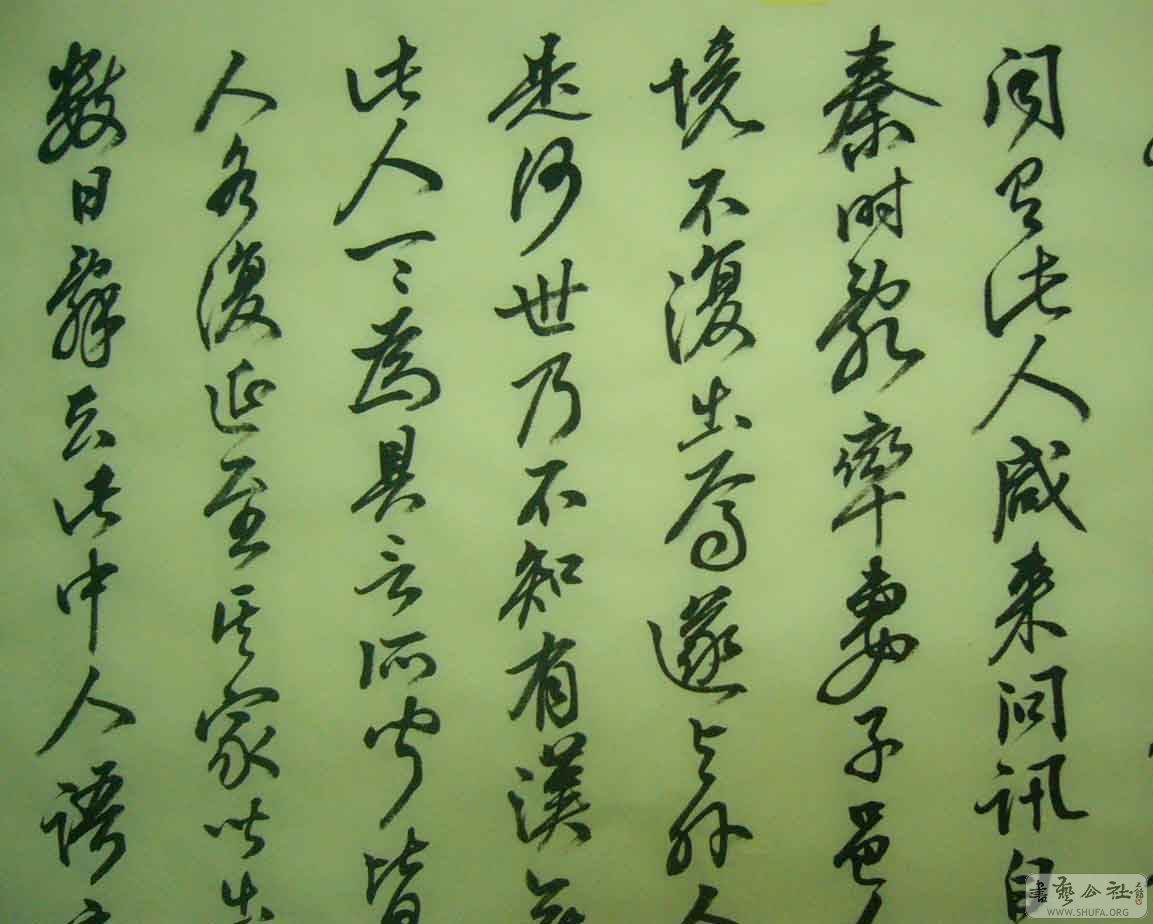 聞有此人咸来问訊自
秦时亂率妻子邑人
境不復出焉遂与外人
是何世乃不知有漢無
此人一一為具言所聞皆
人各復延至其家皆出
數日辭去此中人語
書藝公社
WWW.SHUFA.ORG